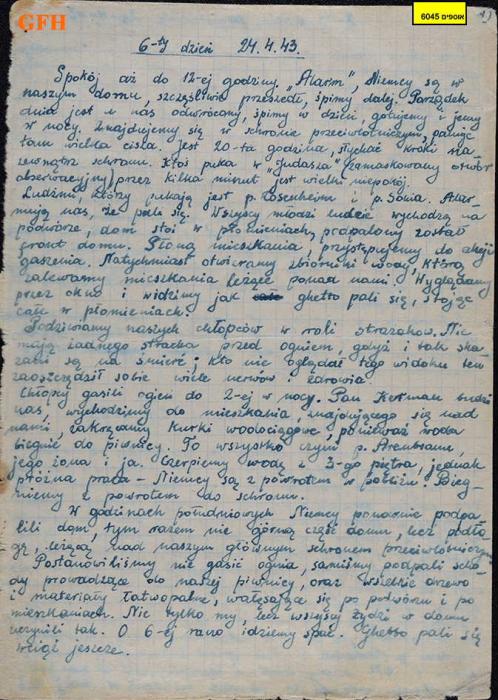 GFH
אוספים 6045
1)
6-ty dzień 24.4.43.
Spokój aż do 12-ej godziny, „Alarm”, Niemcy są w
naszym domu, szczęśliwie przeszedł, śpimy dalej. Porządek
dnia jest u nas odwrócony, śpimy w dzień, gotujemy i jemy
w nocy. Znajdujemy się w schronie przeciwlotniczym, panuje
tam wielka cisza. Jest 20-ta godzina, słychać kroki na
zewnątrz schronu. Ktoś puka w „Judasza” (zamaskowany otwór
obserwacyjny) przez kilka minut jest wielki niepokój.
Ludźmi, którzy pukają jest p. Rosenheim i p. Sowa. Alar-
mują nas, że pali się. Wszyscy młodzi ludzie wychodzą na
podwórze, dom stoi w płomieniach, podpalony został
front domu. Płoną mieszkania, przystępujemy do akcji
gaszenia. Natychmiast otwieramy zbiorniki wody, którą
zalewamy mieszkania leżące ponad nami. Wyglądamy
przez okno i widzimy jak ghetto pali się, stojąc
całe w płomieniach.
Podziwiamy naszych chłopców w roli strażaków. Nie
mają żadnego strachu przed ogniem, gdyż i tak ska-
zani są na śmierć; kto nie oglądał tego widoku ten
zaoszczędził sobie wiele nerwów i zdrowia.
Chłopcy gasili ogień do 2-ej w nocy. Pan Kerman budzi
nas, wychodzimy do mieszkania znajdującego się nad
nami, zakręcamy kurki wodociągowe, ponieważ woda
biegnie do piwnicy. To wszystko czyni p.
jego żona i ja. Czerpiemy wodę z 3-go piętra, jednak
próżna praca - Niemcy są z powrotem w pobliżu. Bieg-
niemy z powrotem do schronu.
W godzinach południowych Niemcy ponownie podpa-
lili dom, tym razem nie górną część domu, lecz podło-
gę, leżącą nad naszym głównym schronem przeciwlotniczym
Postanowiliśmy nie gasić ognia, samiśmy podpali scho-
dy prowadzące do naszej piwnicy, oraz wszelkie drzewo
i materiały łatwopalne, wałęsające się po podwórzu i po
mieszkaniach. Nie tylko my, lecz wszyscy żydzi w domu
uczynili tak. O 6-ej rano idziemy spać. Ghetto pali się
wciąż jeszcze.